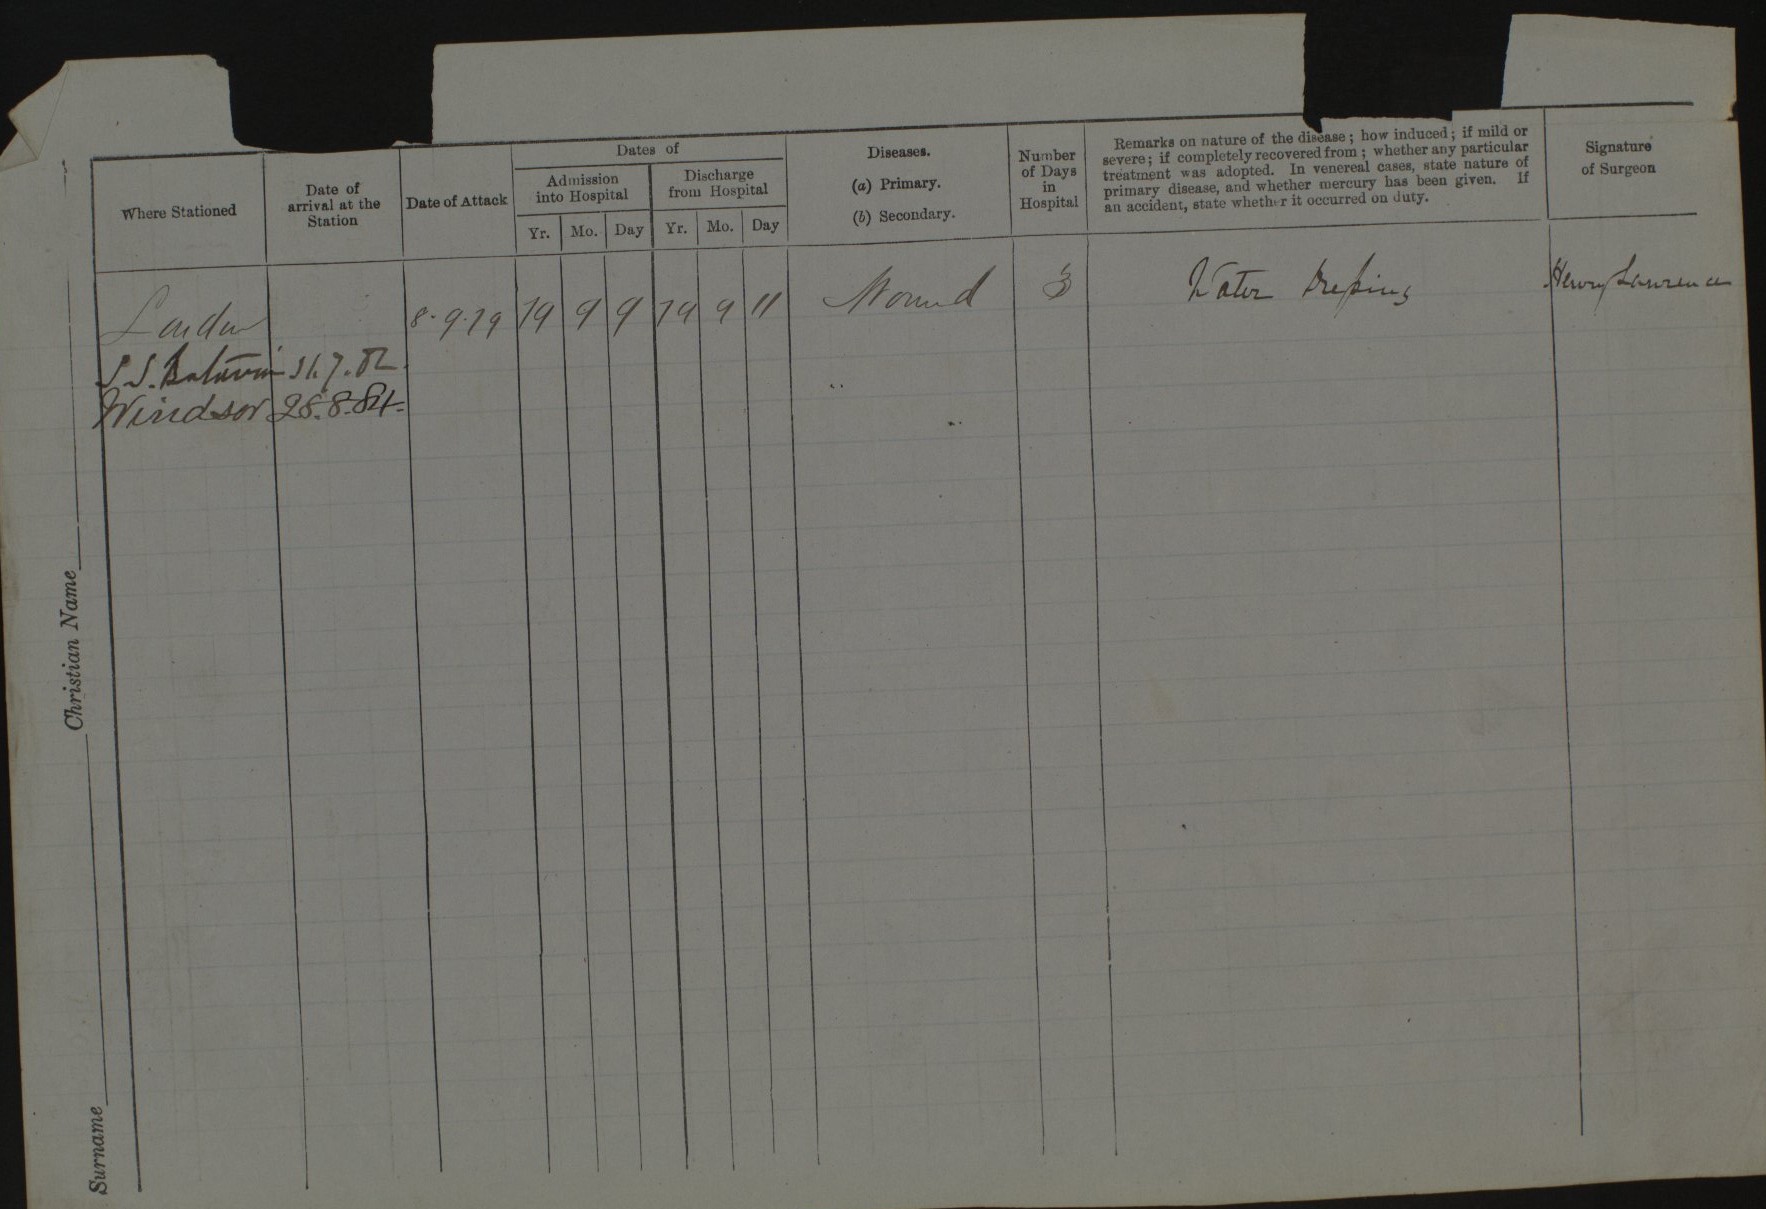 Where Stationed
Date of
arrival at the
Station
Date of Attack
Dates of
Admission
into Hospital
Discharge
from Hospital
Yr. Mo. Day Yr. Mo. Day
Diseases.
(a) Primary.
(b) Secondary.
Number
of Days
in
Hospital
Remarks on nature of the disease; how induced; if mild or
severe; if completely recovered from; whether any particular
treatment was adopted. In venereal cases, state nature of
primary disease, and whether mercury has been given. If
an accident, state whether it occurred on duty.
Signature
of Surgeon
London 8.9.79 79 9 9 79 9 11 Wound 3 Water Dressing Henry Lawrence
S.S. Batavia 31.7.82
Windsor 28.8.84
Surname Christian Name